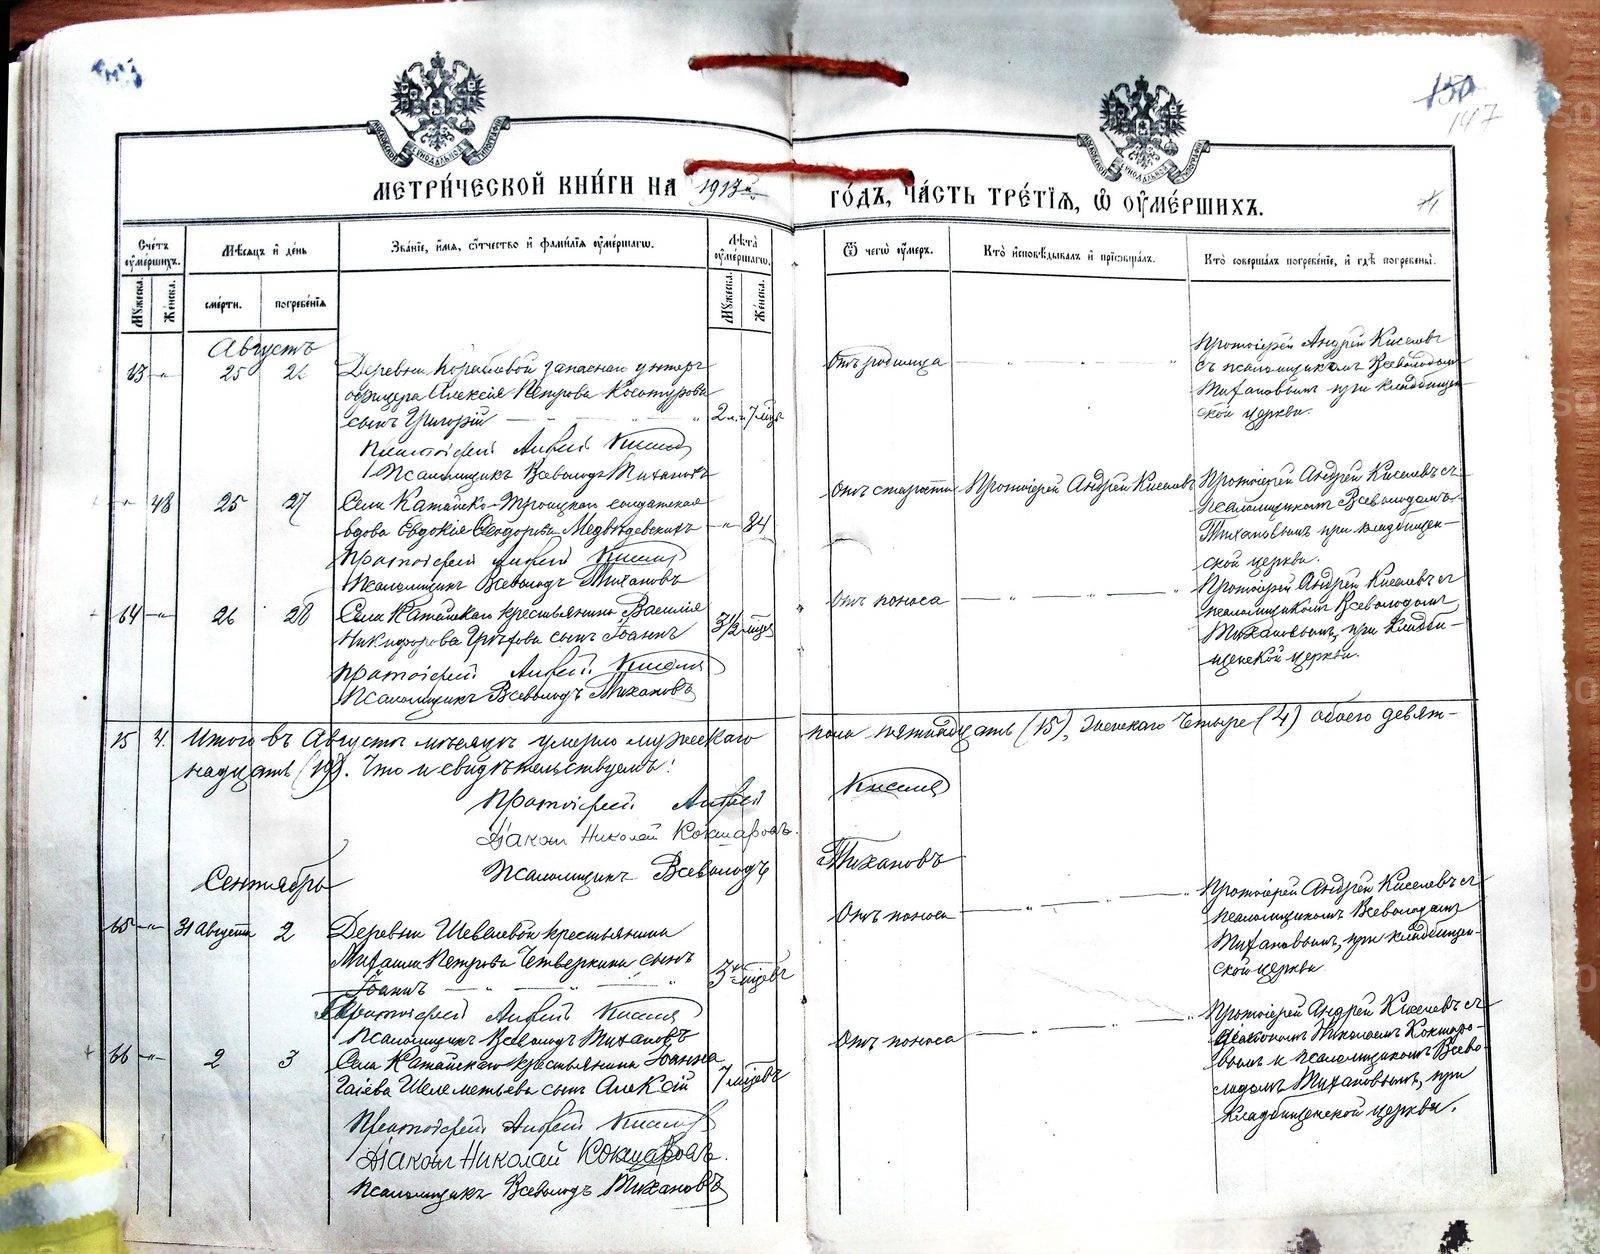 150
147
МОСКОВСКОЙ СИНОДАЛЬНОЙ ТИПОГРАФІИ
МОСКОВСКОЙ СИНОДАЛЬНОЙ ТИПОГРАФІИ
МЕТРИ́ЧЕСКОЙ КНИ́ГИ НА 1913й ГО́ДЪ, ЧА́СТЬ ТРЕ́ТІѦ, Ѡ҆ ОУ҆МЕ́РШИХЪ.
Сче́тъ оу҆ме́ршихъ.
Мѣ́сѧцъ и҆ де́нь
Зва́нїе, и҆́мѧ, ѻ҆́тчество и҆ фами́лїѧ оу҆ме́ршагѡ.
Лѣ́та оу҆ме́ршагѡ.
Ѿ чегѡ̀ оу҆́меръ.
Кто̀ и҆сповѣ́дывалъ и҆ прїѡбща́лъ.
Кто̀ соверша́лъ погребе́нїе, и҆ гдѣ̀ погребены̀.
Мꙋ́жеска. Же́нска. сме́рти. погребе́нїѧ Мꙋ́жеска. Же́нска.
Августъ
63 - " - 25 26 Деревни запаснаго унтеръ
офицера Алексія Петрова Косотурова
сынъ Григорій 2 л. и 7 мцъ
Протоіерей Андрей Киселевъ
Псаломщикъ Всеволодъ Тихановъ
Отъ родимца
Протоіерей Андрей Киселевъ
съ псаломщикомъ Всеволодомъ
Тихановымъ при кладбищен-
ской церкви.
- " - 48 25 27 Села Катайско-Троицкаго солдатская
вдова Евдокія Ѳеодорова Медвѣдевскихъ - " - 84
Протоіерей Андрей Киселевъ
Псаломщикъ Всеволодъ Тихановъ
Отъ старости Протоіерей Андрей Киселевъ
Протоіерей Андрей Киселевъ съ
псаломщикомъ Всеволодомъ
Тихановымъ при кладбищен-
ской церкви.
64 - " - 26 28 Села Катайскаго крестьянина Василія
Никифорова Грѣхова сынъ Іоаннъ 3 1/2 мцев
Протоіерей Андрей Киселевъ
Псаломщикъ Всеволодъ Тихановъ
Отъ поноса
Протоіерей Андрей Киселевъ съ
псаломщикомъ Всеволодомъ
Тихановымъ, при кладби-
щенской церкви.
15 4. Итого въ Августѣ мѣсяцѣ умерло мужескаго пола пятнадцать (15), женскаго четыре (4) обоего девят-
надцать (19). Что и свидѣтельствуемъ:
Протоіерей Андрей Киселевъ
Діаконъ Николай Кокшаровъ.
Псаломщикъ Всеволодъ Тихановъ
Сентябрь
65 - " - 31 Августа 2 Деревни Шевелевой крестьянина
Михаила Петрова Четверкина сынъ
Іоаннъ 3 мцевъ
Протоіерей Андрей Киселевъ
Псаломщикъ Всеволодъ Тихановъ
Отъ поноса
Протоіерей Андрей Киселевъ съ
псаломщикомъ Всеволодомъ
Тихановымъ, при кладбищен-
ской церкви
66 - " - 2 3 Села Катайскаго крестьянина Іоанна
Гаіева Шелеметьева сынъ Алексій 7 мцевъ
Протоіерей Андрей Киселевъ
Діаконъ Николай Кокшаровъ.
Псаломщикъ Всеволодъ Тихановъ
Отъ поноса
Протоіерей Андрей Киселевъ съ
діакономъ Николаемъ Кокшаро-
вымъ и псаломщикомъ Всево-
лодомъ Тихановымъ, при
кладбищенской церкви.